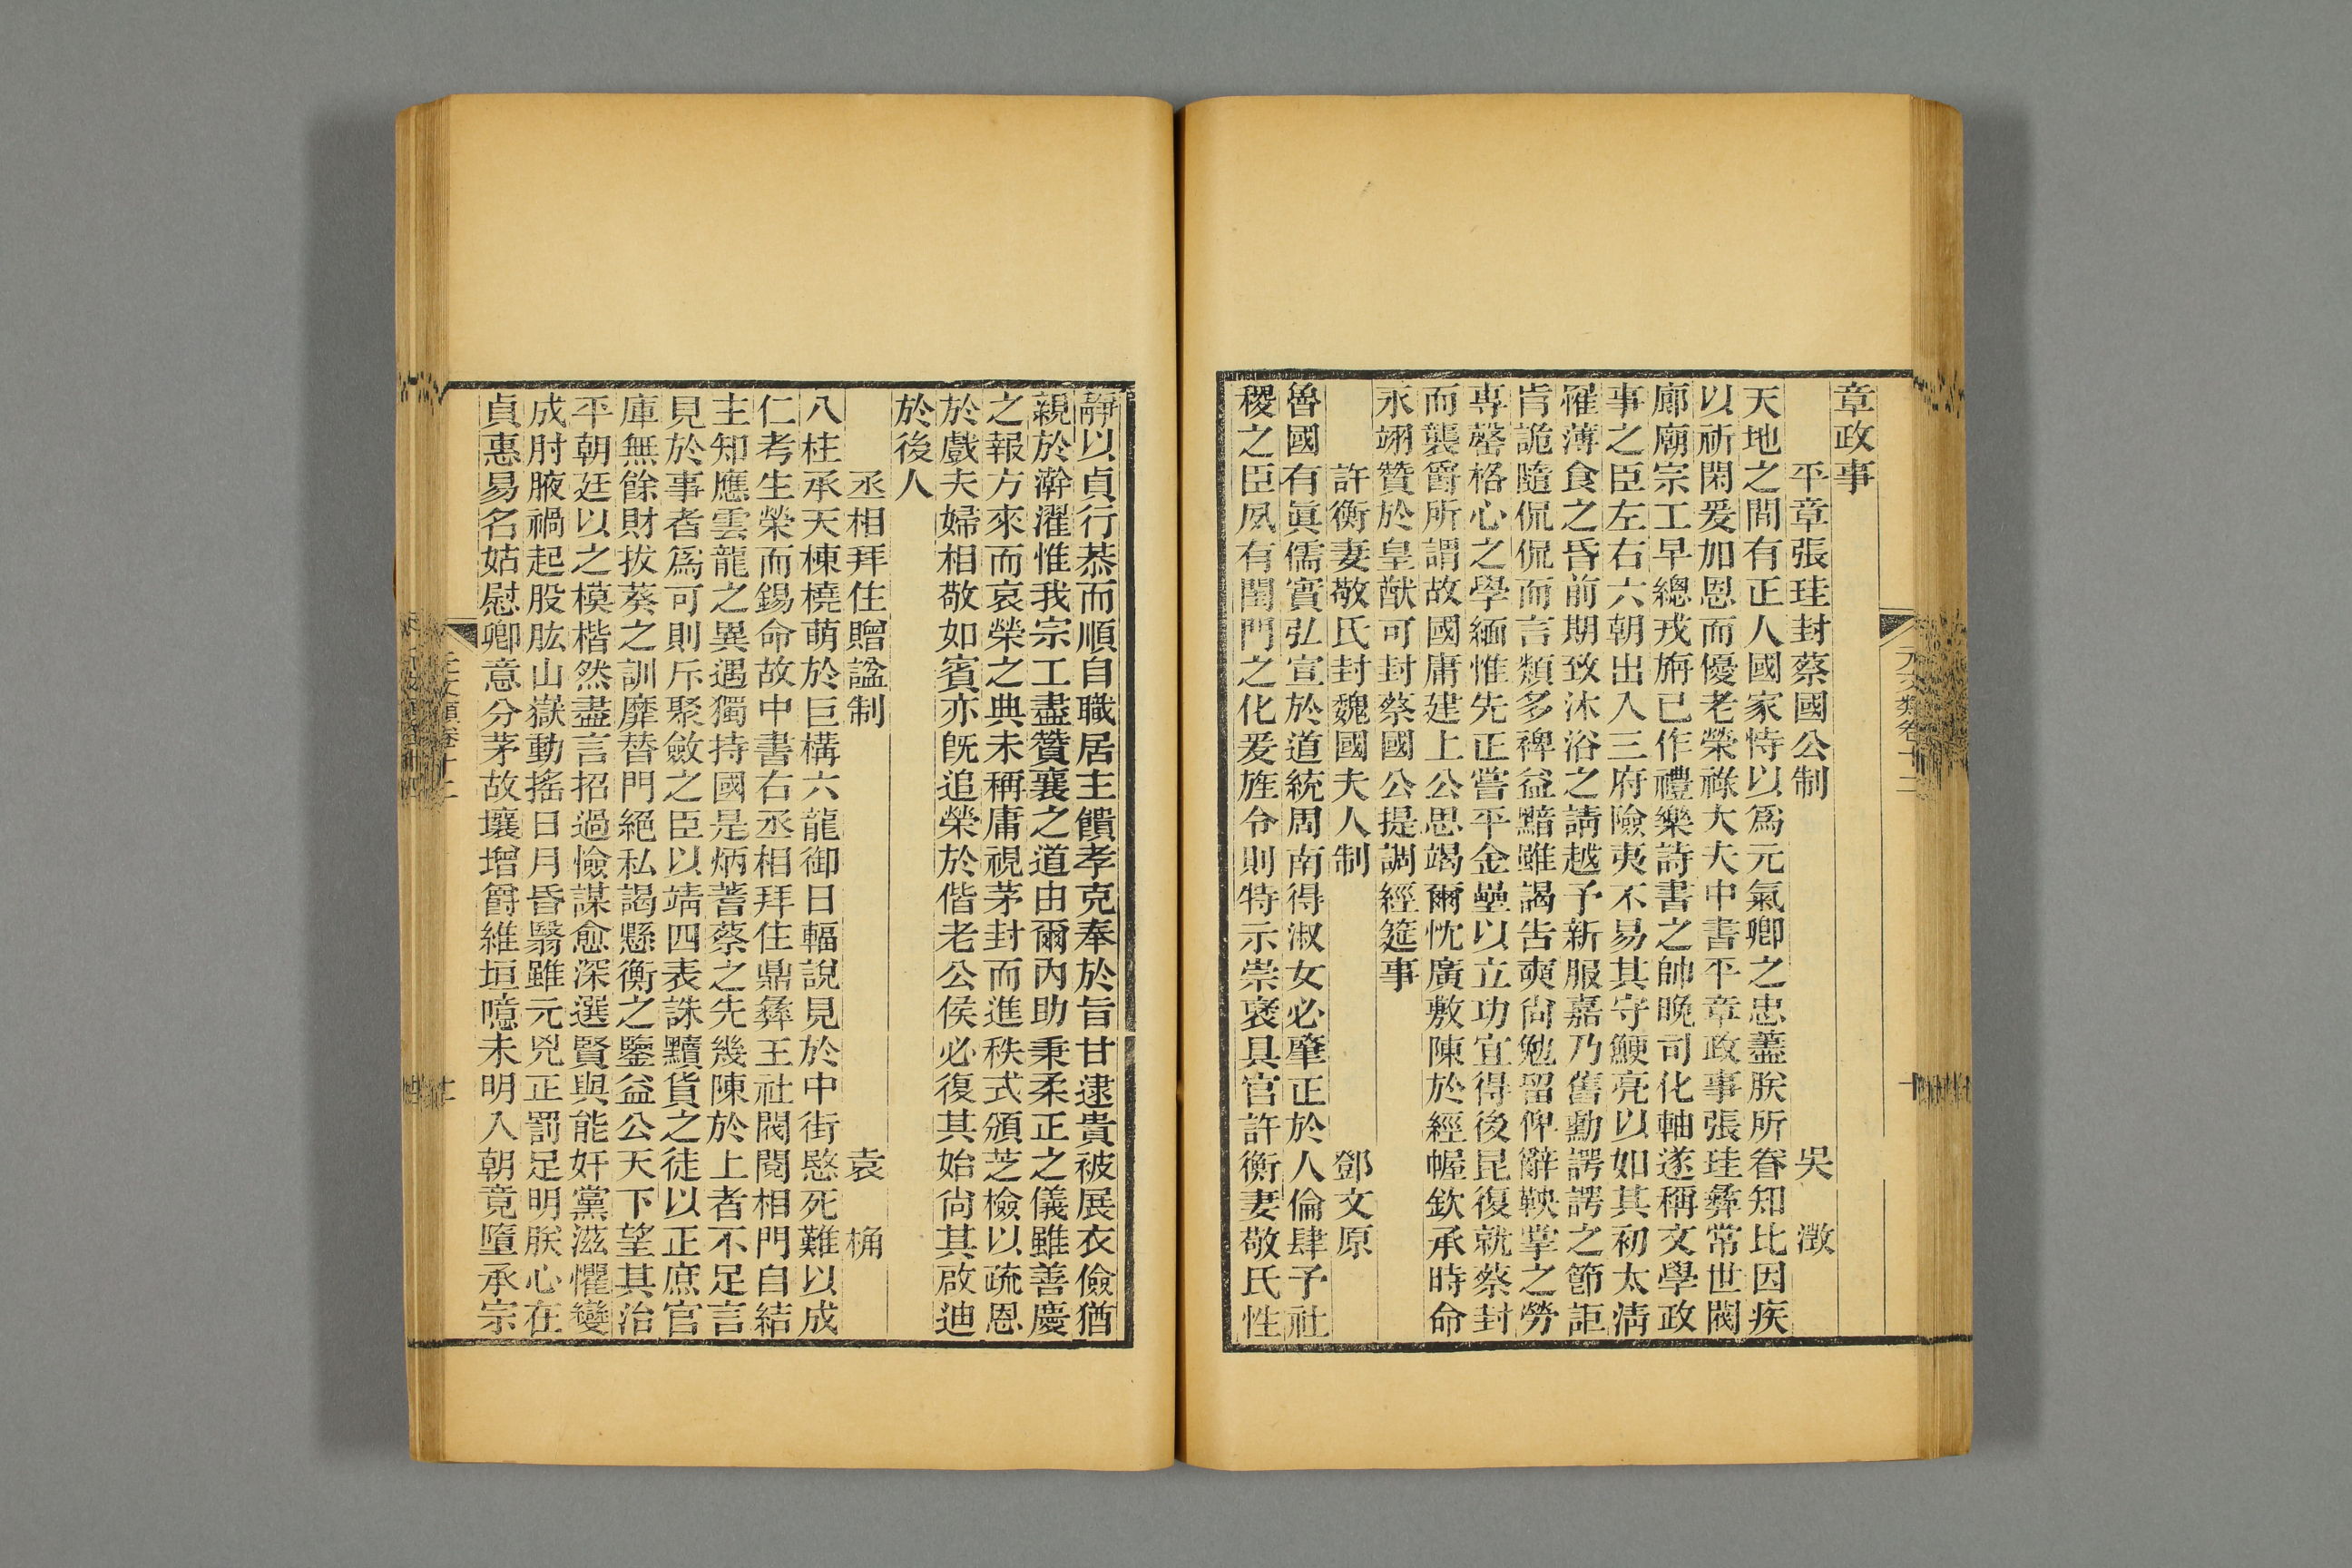 元文類卷十二
章政事
平章張珪封蔡國公制 吳 澂
天地之間有正人國家恃以爲元氣卿之忠藎朕所眷知比因疾
以祈閑爰加恩而優老榮祿大夫中書平章政事張珪彝常世閥
廊廟宗工早總戎旃已作禮樂詩書之帥晚司化軸遂稱文學政
事之臣左右六朝出入三府險夷不易其守鯁亮以如其初太淸
罹薄食之昏前期致沐浴之請越予新服嘉乃舊勳諤諤之節詎
肯詭隨侃侃而言類多裨益黯雖謁告奭尙勉留俾辭鞅掌之勞
専罄格心之學緬惟先正嘗平金壘以立功宜得後昆復就蔡封
而襲爵所謂故國庸建上公思竭爾忱廣敷陳於經幄欽承時命
永翊贊於皇猷可封蔡國公提調經筵事
許衡妻敬氏封魏國夫人制 鄧文原
魯國有眞儒實弘宣於道統周南得淑女必肇正於人倫肆予社
稷之臣夙有閨門之化爰旌令則特示崇褒具官許衡妻敬氏性
靜以貞行恭而順自職居主饋孝克奉於旨甘逮貴被展衣儉猶
親於澣濯惟我宗工盡贊襄之道由爾內助秉柔正之儀雖善慶
之報方來而哀榮之典未稱庸視茅封而進秩式頒芝檢以疏恩
於戲夫婦相敬如賓亦旣追榮於偕老公侯必復其始尙其啟迪
於後人
丞相拜住贈諡制 袁 桷
八柱承天棟橈萌於巨構六龍御日輻說見於中街愍死難以成
仁考生榮而錫命故中書右丞相拜住鼎彝王社閥閱相門自結
主知應雲龍之異遇獨持國是炳蓍蔡之先幾陳於上者不足言
見於事者爲可則斥聚斂之臣以靖四表誅黷貨之徒以正庶官
庫無餘財拔葵之訓靡替門絕私謁懸衡之鑒益公天下望其治
平朝廷以之模楷然盡言招過憸謀愈深選賢與能奸黨滋懼變
成肘腋禍起股肱山嶽動搖日月昏翳雖元兇正罰足明朕心在
貞惠易名姑慰卿意分茅故壤增爵維垣噫未明入朝竟墮承宗
元文類卷十二